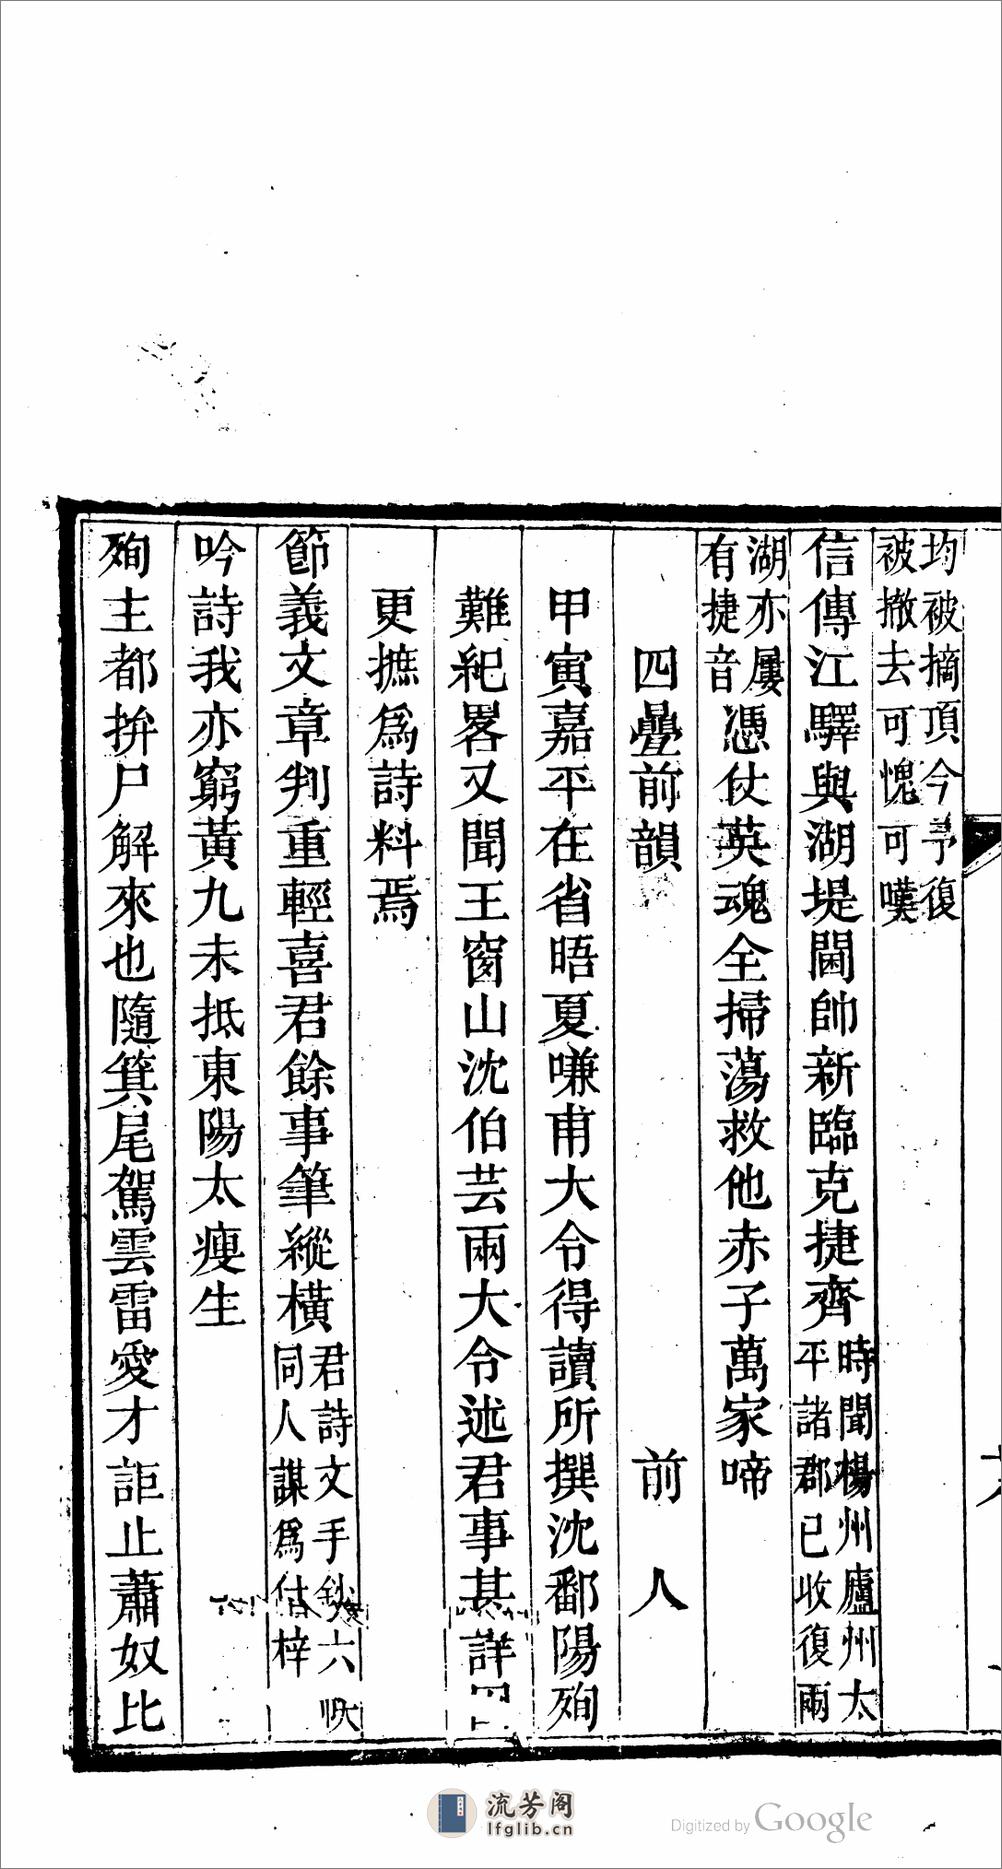 均被摘頂今予復
被撤去可愧可嘆
信傳江驛與湖堤閫帥新臨克捷齊
時聞楊州廬州太
平諸郡已收復兩
湖亦屢
有捷音
憑仗英魂全掃蕩救他赤子萬家啼
四疊前韻 前人
甲寅嘉平在省晤夏嗛甫大令得讀所撰沈鄱陽殉
難紀畧又聞王窗山沈伯芸兩大令述君事甚詳
更摭為詩料焉
節義文章判重輕喜君餘事筆縱橫
君詩文手鈔六帙
同人謀為付梓
吟詩我亦窮黃九未抵東陽太瘦生
殉主都拚尸解來也隨箕尾駕雲雷愛才詎止蕭奴比
流芳阁
lfglib.cn
Digitized by Google